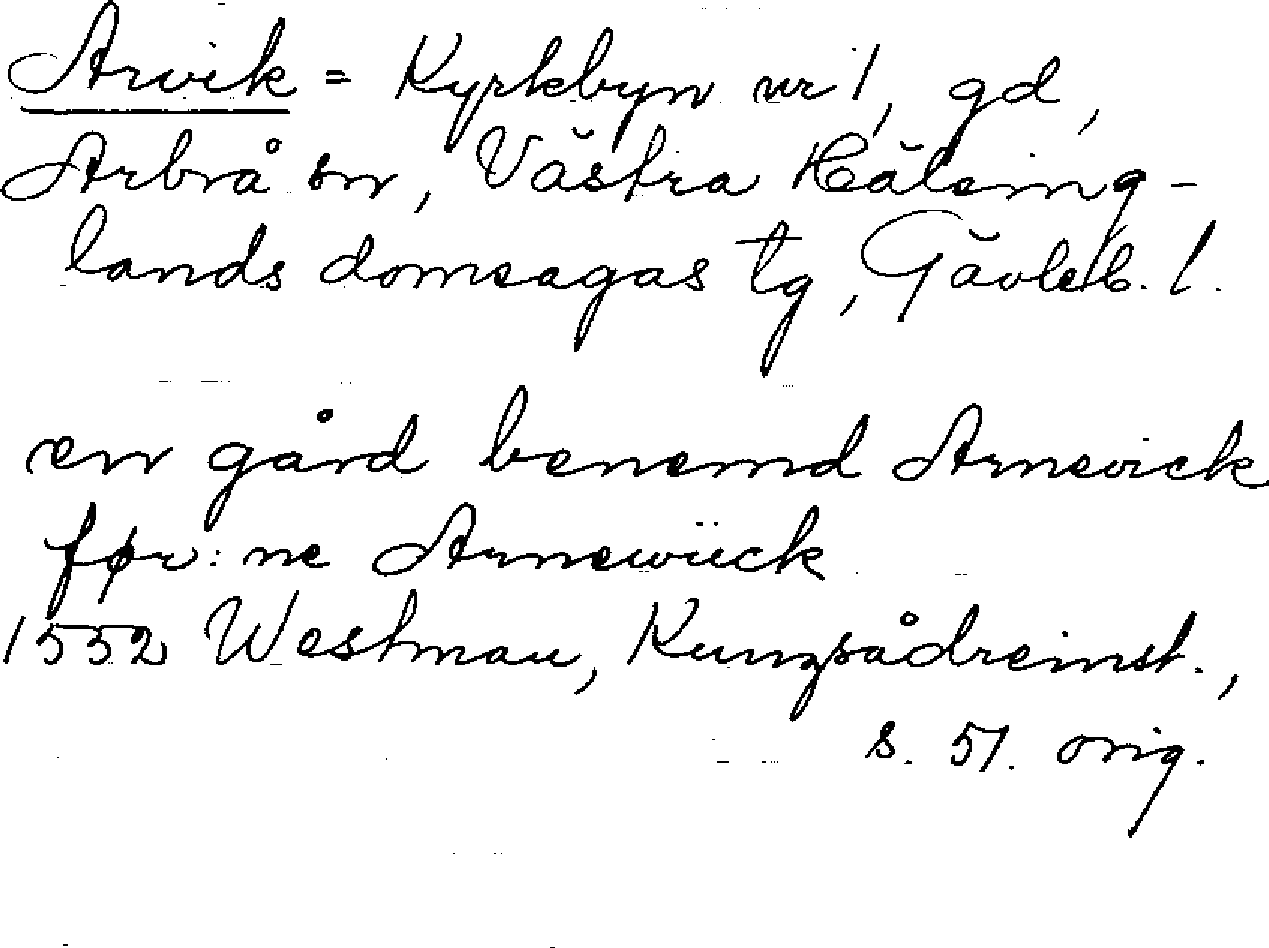 Arvik = Kyrkbyn nr 1, gd,
Arbrå sn, Västra Hälsing-
lands domsagas tg, Gävleb. l.
en gård benemd Arnevick
før: ne Arnewick
1552 Westmau, Kungsådreinst.,
s. 51. orig.